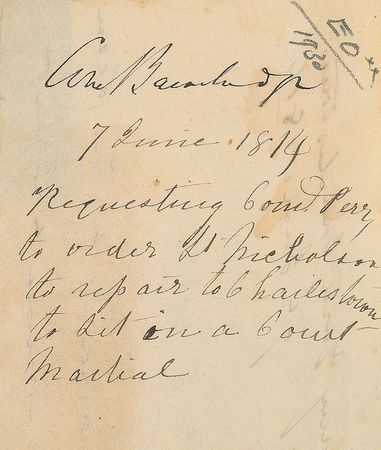 EO
1930
Wm Bainbridge
7 June 1814
Requesting Comd Perry
to order Lt Nicholson
to repair to Charlestown
to sit on a Court
Martial